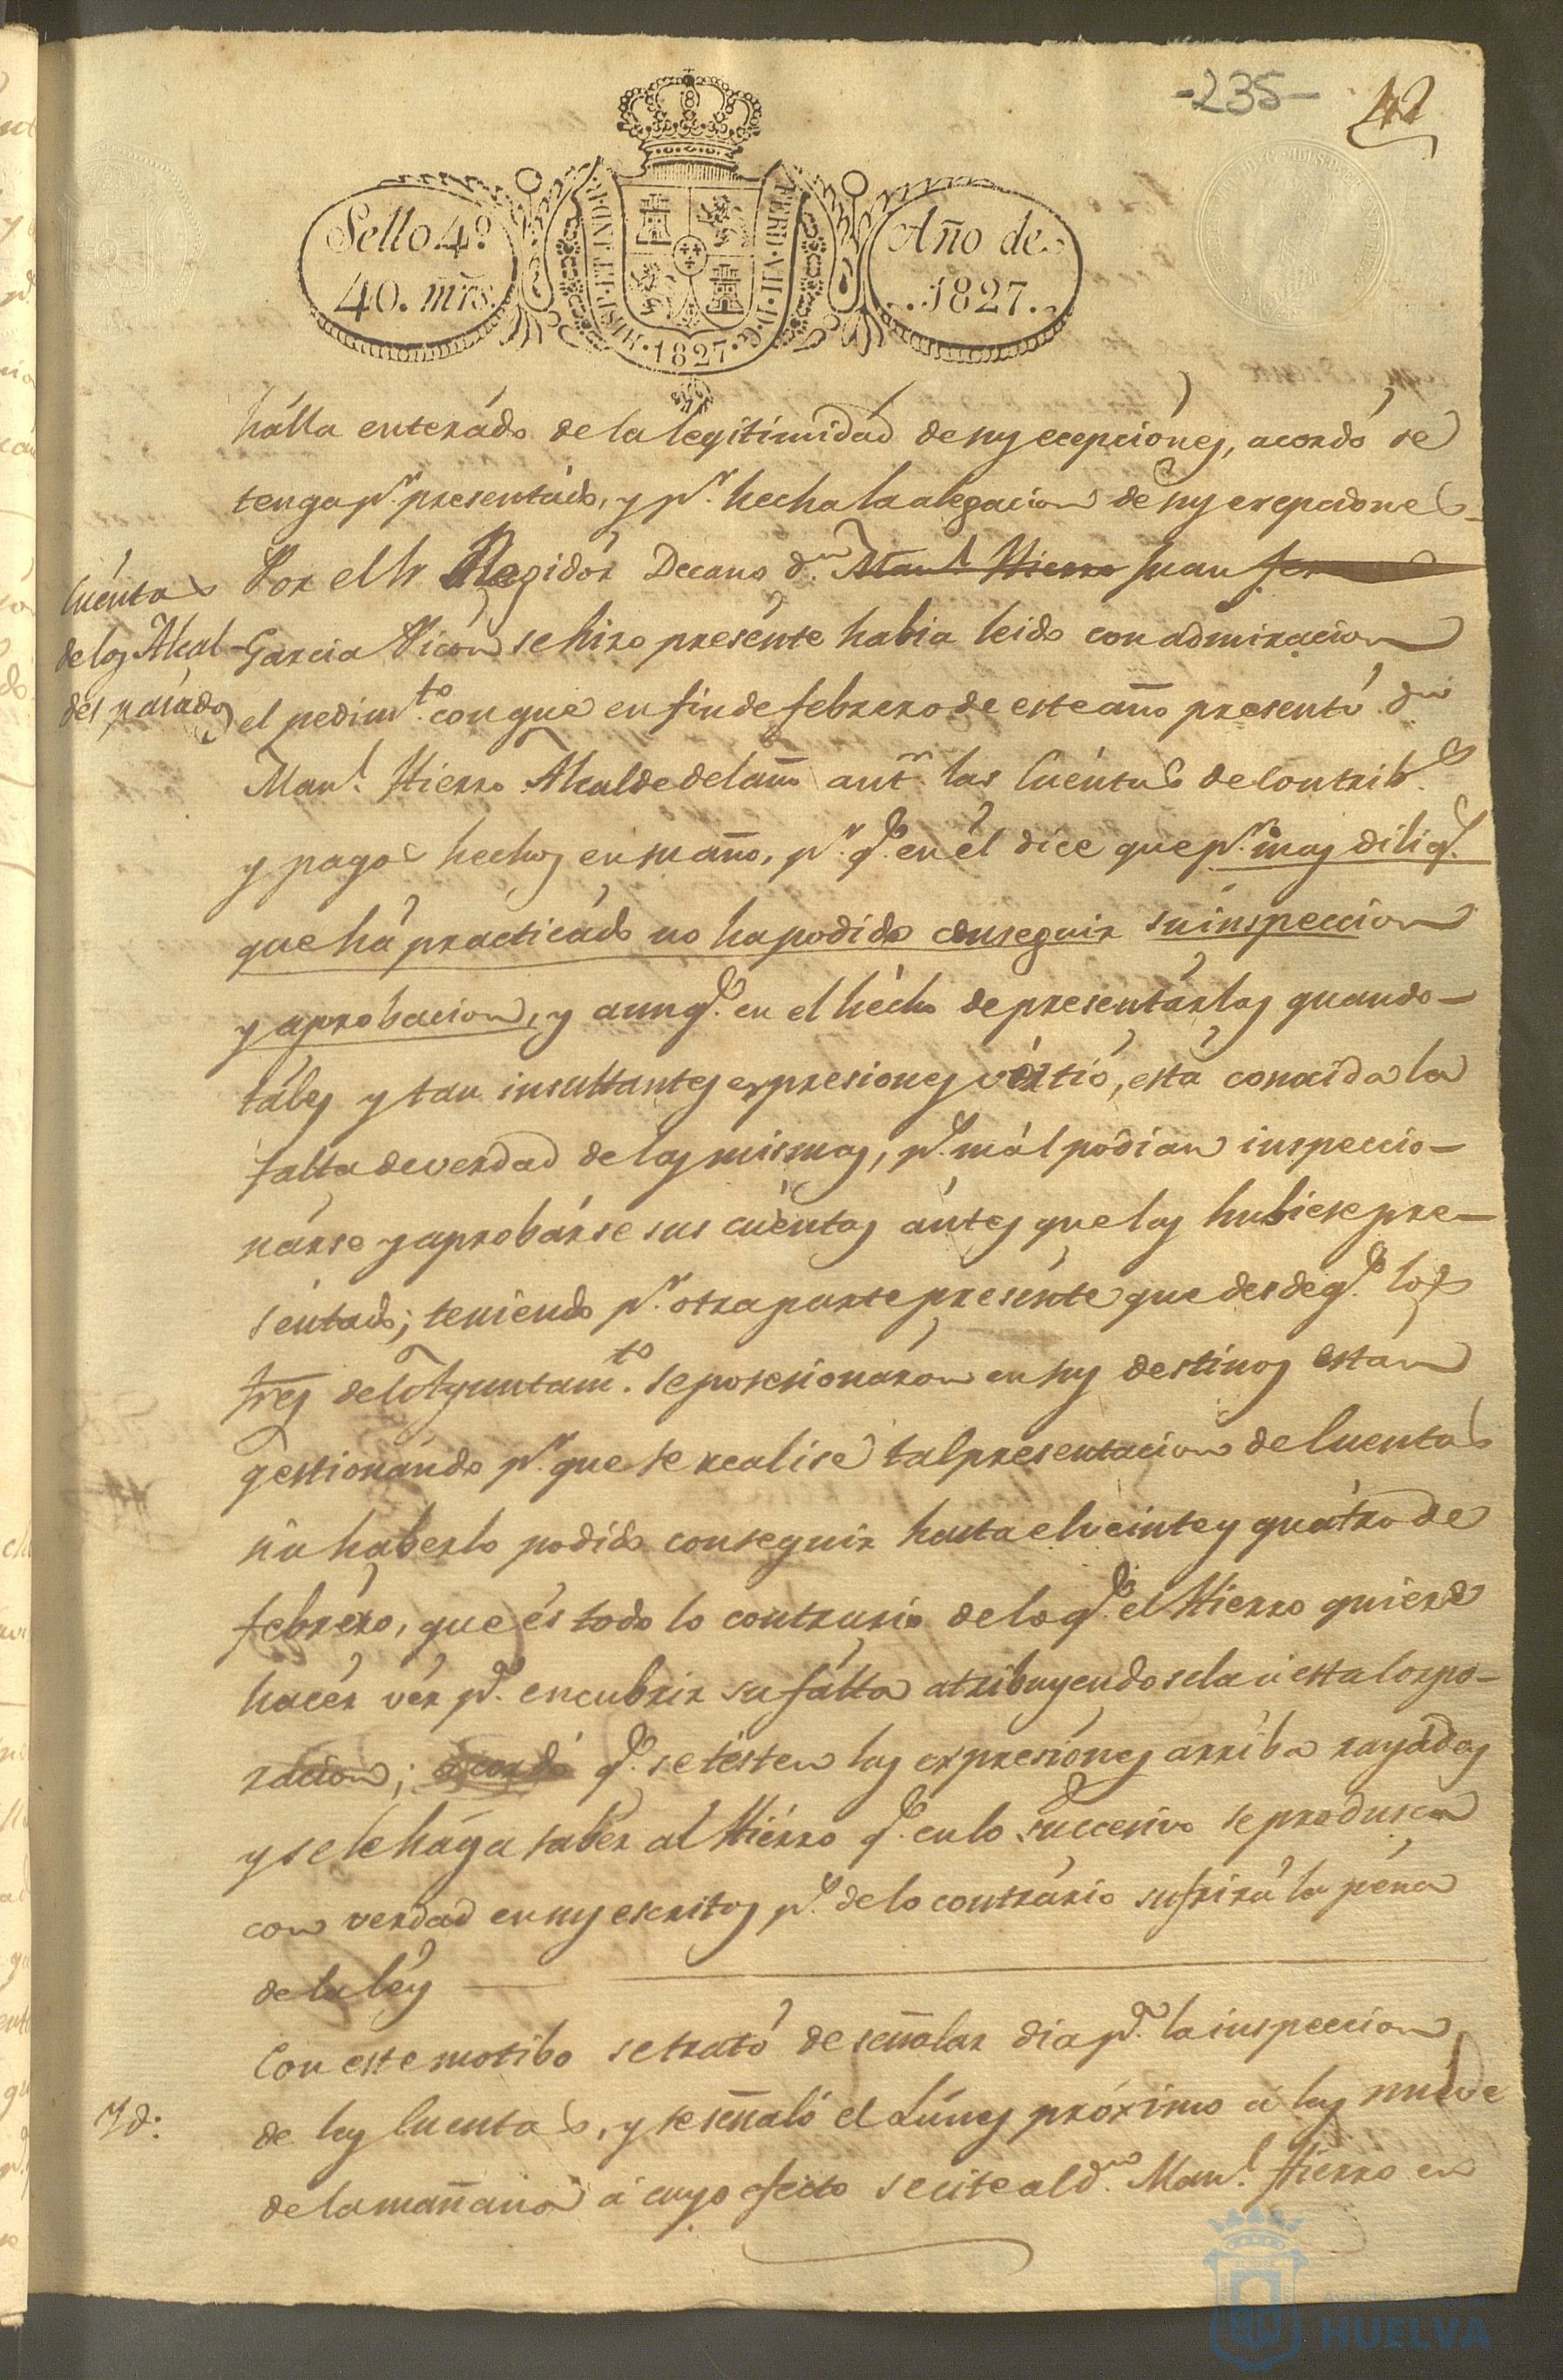 -235-
42
Sello 4º
40. mrs.
HISP. ET IND. R.
FERD. VII. D. G.
1827
Año de
1827.
hálla enterádo de la legitimidád de sus ecepciónes, acordó se
tenga pr. presentádo, y pr. hecha la alegacion de sus ecepciones
Cuéntas
de los Alcal-
des pasádos
Por el Sr Regidór Decano dn. Manl. Hierro Juan
Garcia Vicon se hizo presénte habia leido con admiracion
el pedimto. con que en fin de febrero de este año presentó dn
Manl. Hierro Alcalde del año antr. las Cuéntas de Contrib.s
y pagos hechos en su año, pr. qe. en él dice que pr. mas diligs.
que há practicádo no ha podido conseguir su inspeccion
y aprobacion, y aunqe. en el hécho de presentárlas quando
táles y tan insultantes expresiones vértió, está conocida la
falta de verdad de las mismas, ps. mál podian inspeccio-
nárse y aprobárse sus cuéntas ántes que las hubiese pre-
sentado; teniendo pr. otra parte presénte que desde qe. los
Sres del Ayuntamto. se posesionaron en sus destinos están
gestionándo pa. que se realise tal presentacion de Cuentas
sin haberlo podido conseguir hasta el veinte y quátro de
febréro, que és todo lo contrario de lo qe. el Hierro quiere
hacér vér pa. encubrir su fálta atribuyendosela á esta Corpo-
racion; acordó qe. se tésten las expresiónes arriba rayádas
y se le hága saber al Hiérro qe. en lo succesivo se produsca
con verdad en sus escritos ps. de lo contrário sufrirá la péna
de la léy
Con este motibo se trató de señalar dia pa. la inspeccion
Yd.
de las Cuentas, y se señaló el Lúnes próximo á las nueve
de la mañana á cuyo efecto se cite al dn. Manl. Hierro en
HUELVA